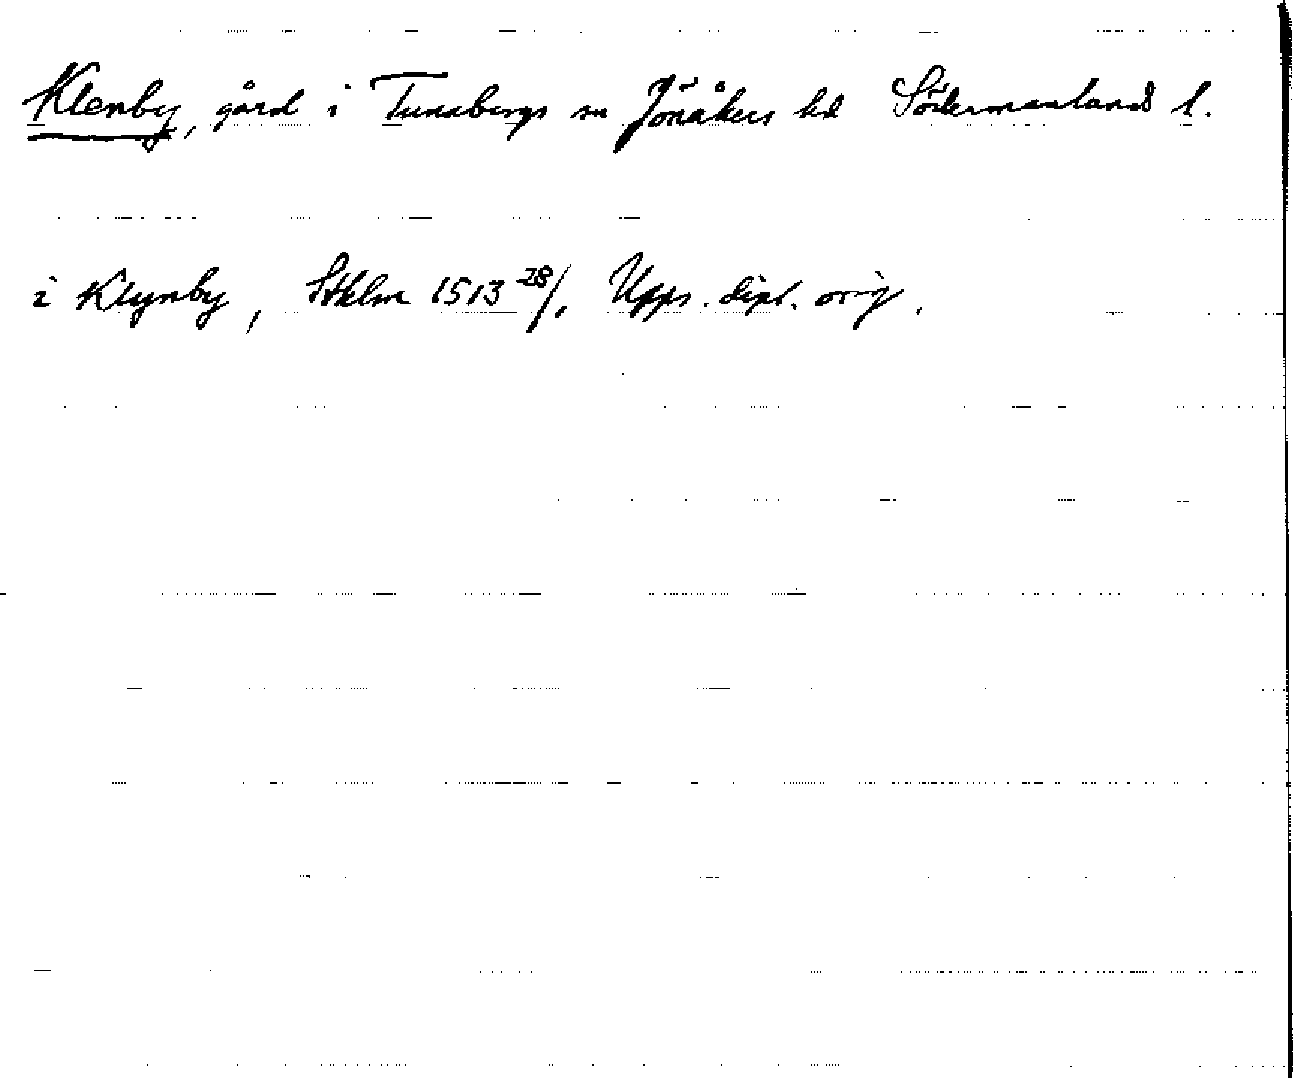 Klenby, gård i Tunabergs sn Jönåkers hd Södermanlands l.
i Klynby, Sthlm 1513 28/, Upps. dipl. orig.